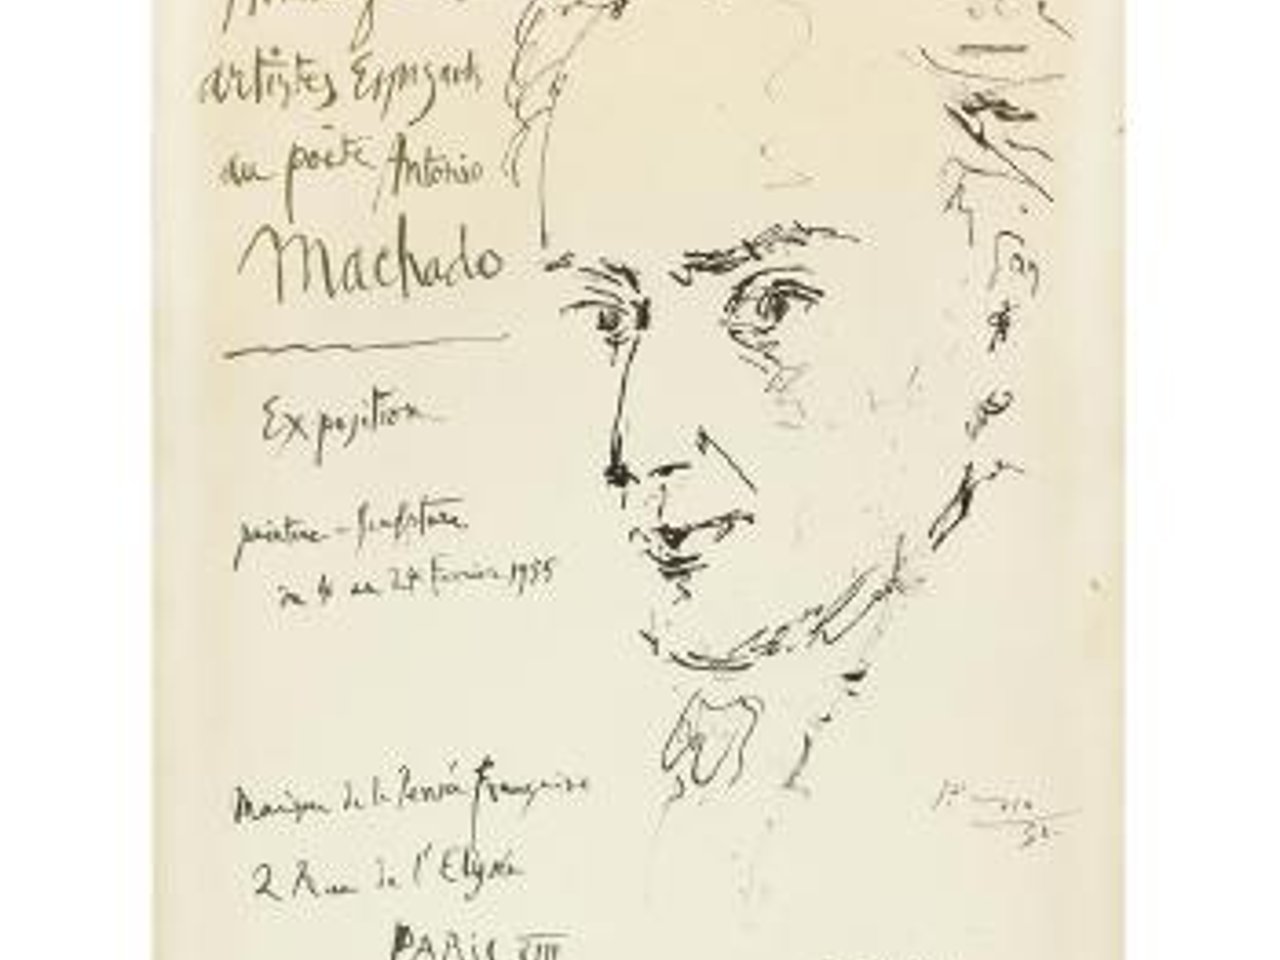 artistes Espagnols
au poète Antonio
Machado
Exposition
peinture - Sculpture
du 4 au 24 Fevrier 1955
Maison de la Pensée Française
2 Rue de l'Elysée
PARIS VIII